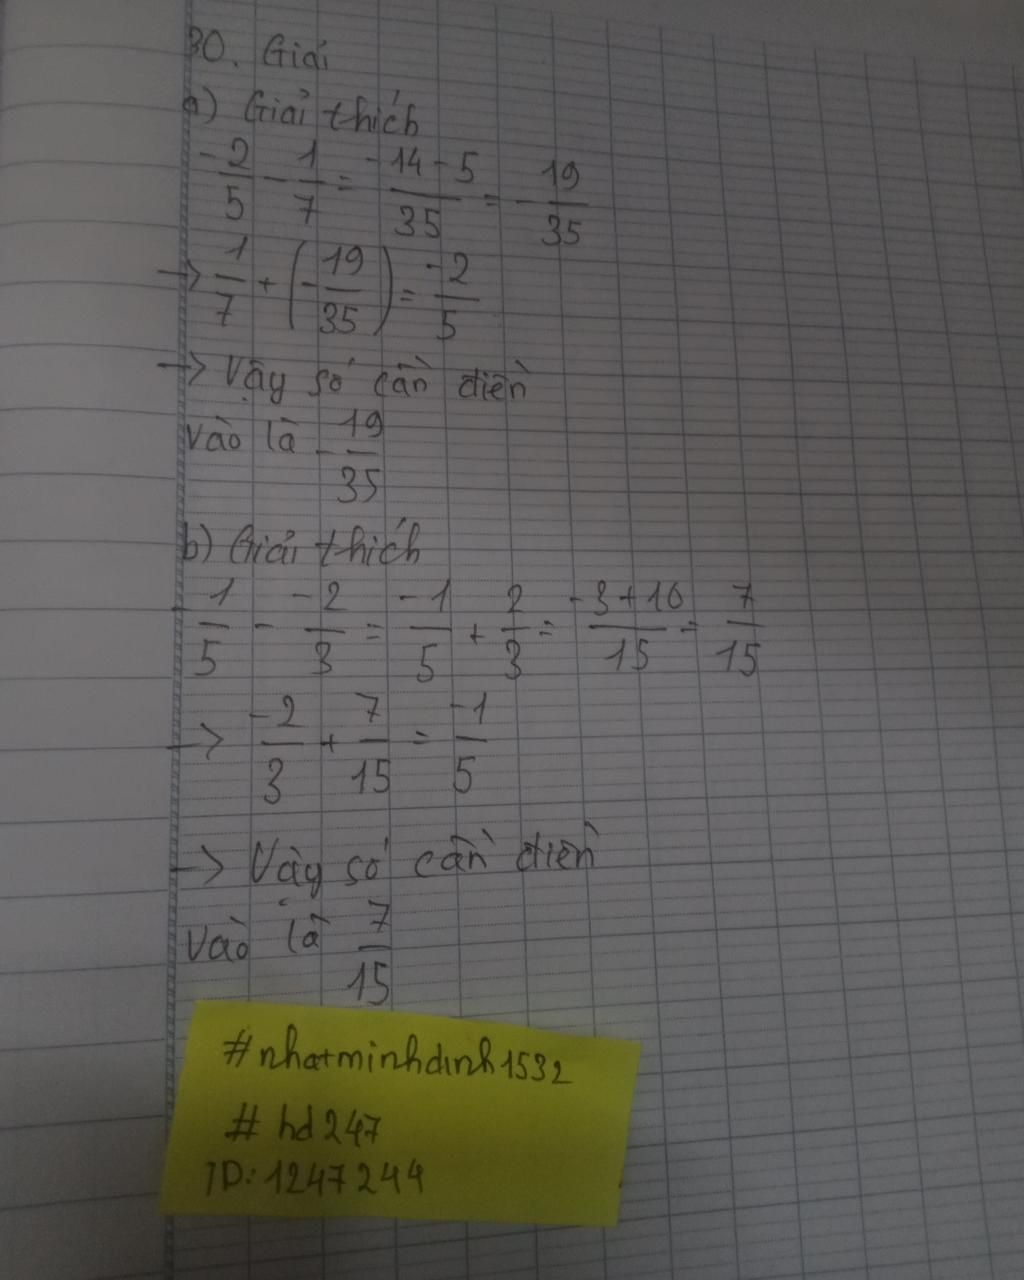 30. Giải
a) Giải thích
-2/5 - 1/7 = -14-5/35 = -19/35
→ 1/7 + (-19/35) = -2/5
→ Vậy số cần điền
vào là -19/35
b) Giải thích
-1/5 - -2/3 = -1/5 + 2/3 = -3+10/15 = 7/15
→ -2/3 + 7/15 = -1/5
→ Vậy số cần điền
vào là 7/15
#nhatminhdinh1532
#hd247
ID: 1247244